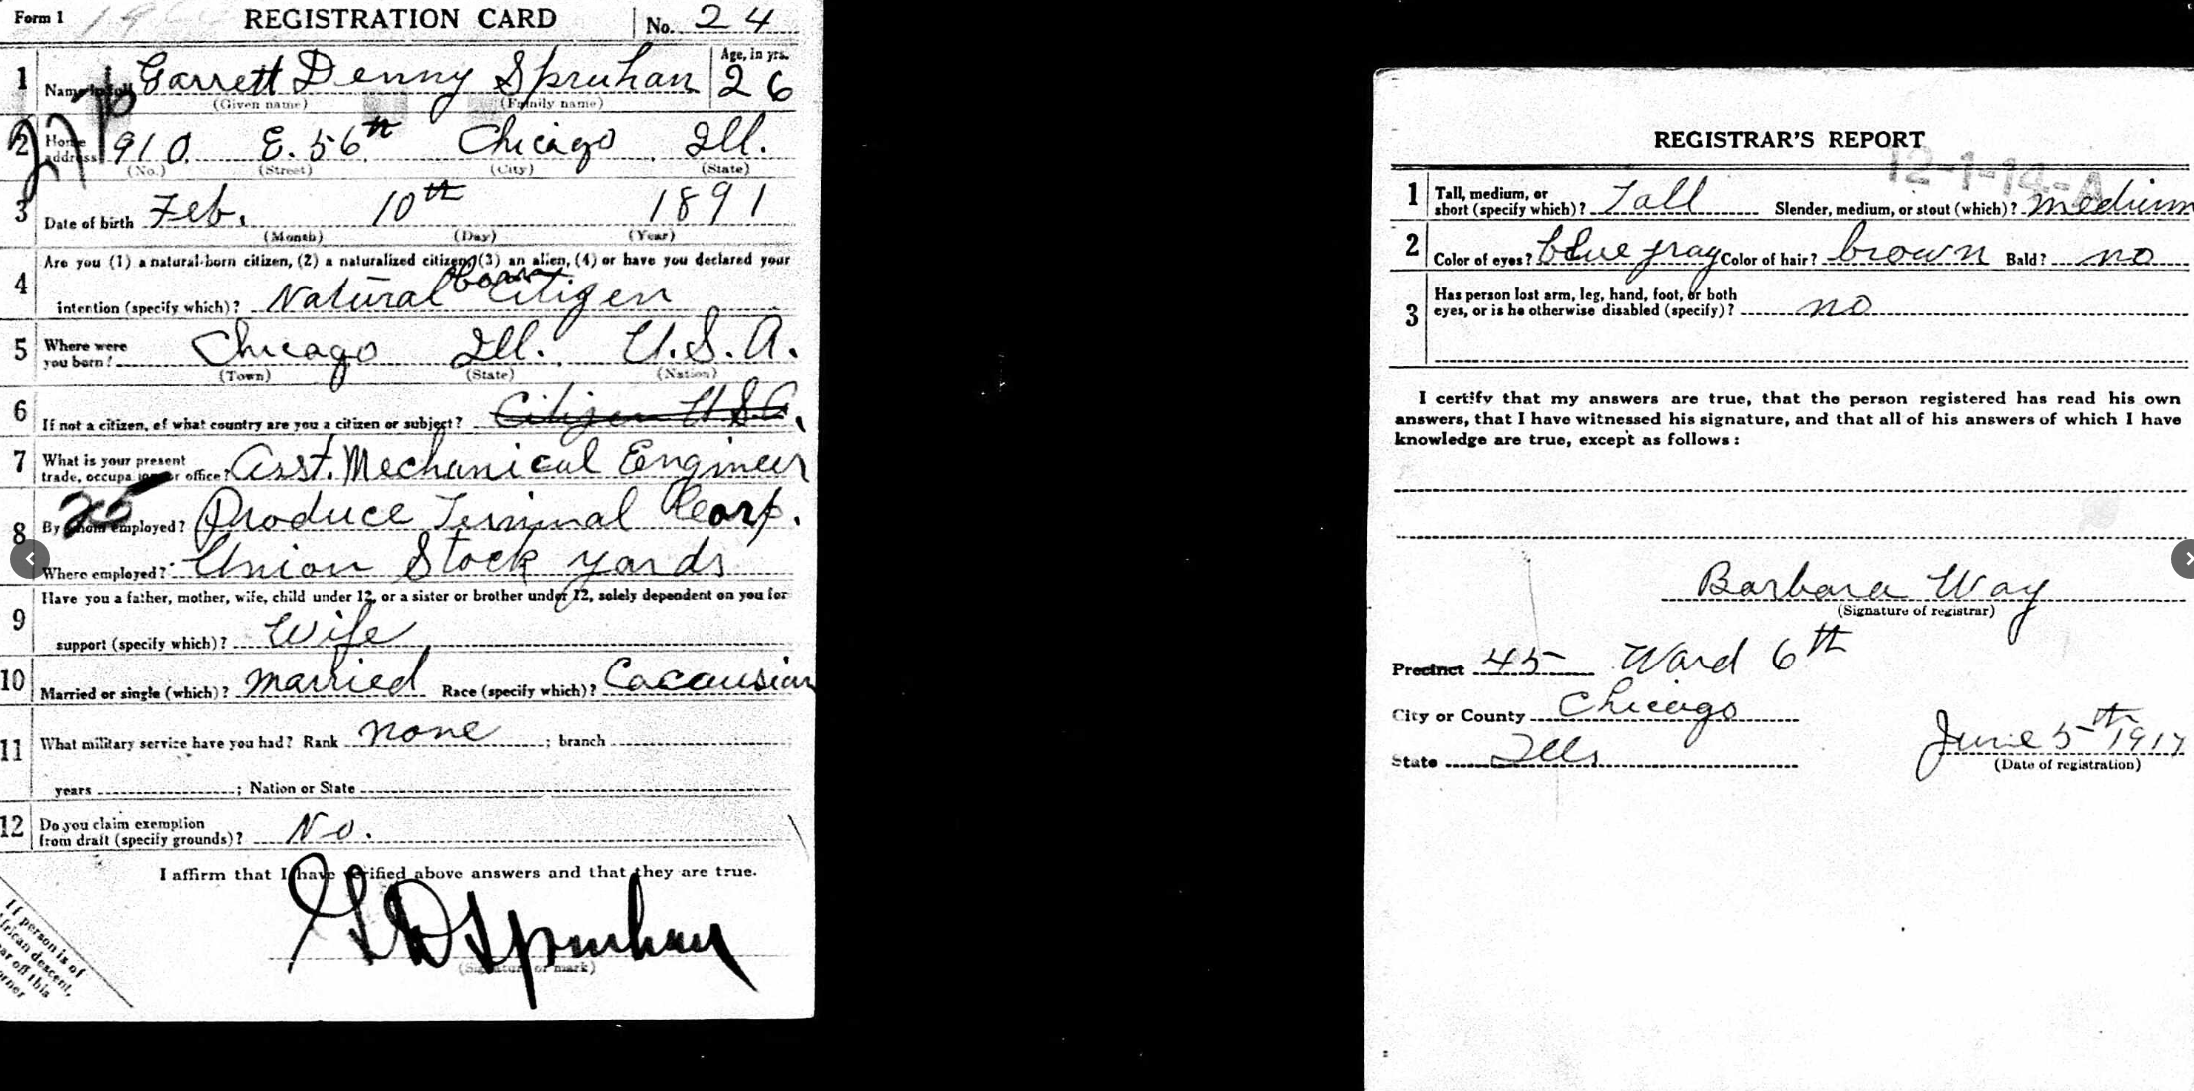 Form 1 REGISTRATION CARD No. 24
1 Name in full Garrett Denny Spruhan Age, in yrs. 26
(Given name) (Family name)
2 Home address 910. E. 56th Chicago Ill.
(No.) (Street) (City) (State)
3 Date of birth Feb. 10th 1891
(Month) (Day) (Year)
4 Are you (1) a natural-born citizen, (2) a naturalized citizen, (3) an alien, (4) or have you declared your
born
intention (specify which)? Natural Citizen
5 Where were you born? Chicago Ill. U.S.A.
(Town) (State) (Nation)
6 If not a citizen, of what country are you a citizen or subject? Citizen U.S.A.
7 What is your present trade, occupation, or office? Asst. Mechanical Engineer
25
8 By whom employed? Produce Terminal Corp.
Where employed? Union Stock yards
9 Have you a father, mother, wife, child under 12, or a sister or brother under 12, solely dependent on you for
support (specify which)? Wife
10 Married or single (which)? married Race (specify which)? Cacausian
11 What military service have you had? Rank none ; branch
years ; Nation or State
12 Do you claim exemption from draft (specify grounds)? No.
I affirm that I have verified above answers and that they are true.
G D Spruhan
(Signature or mark)
If person is of
African descent,
tear off this
corner
REGISTRAR'S REPORT
12-1-14-A
1 Tall, medium, or short (specify which)? Tall Slender, medium, or stout (which)? medium
2 Color of eyes? blue gray Color of hair? brown Bald? no
3 Has person lost arm, leg, hand, foot, or both eyes, or is he otherwise disabled (specify)? no
I certify that my answers are true, that the person registered has read his own
answers, that I have witnessed his signature, and that all of his answers of which I have
knowledge are true, except as follows:
Barbara Way
(Signature of registrar)
Precinct 45 Ward 6th
City or County Chicago
State Ills
June 5th 1917
(Date of registration)